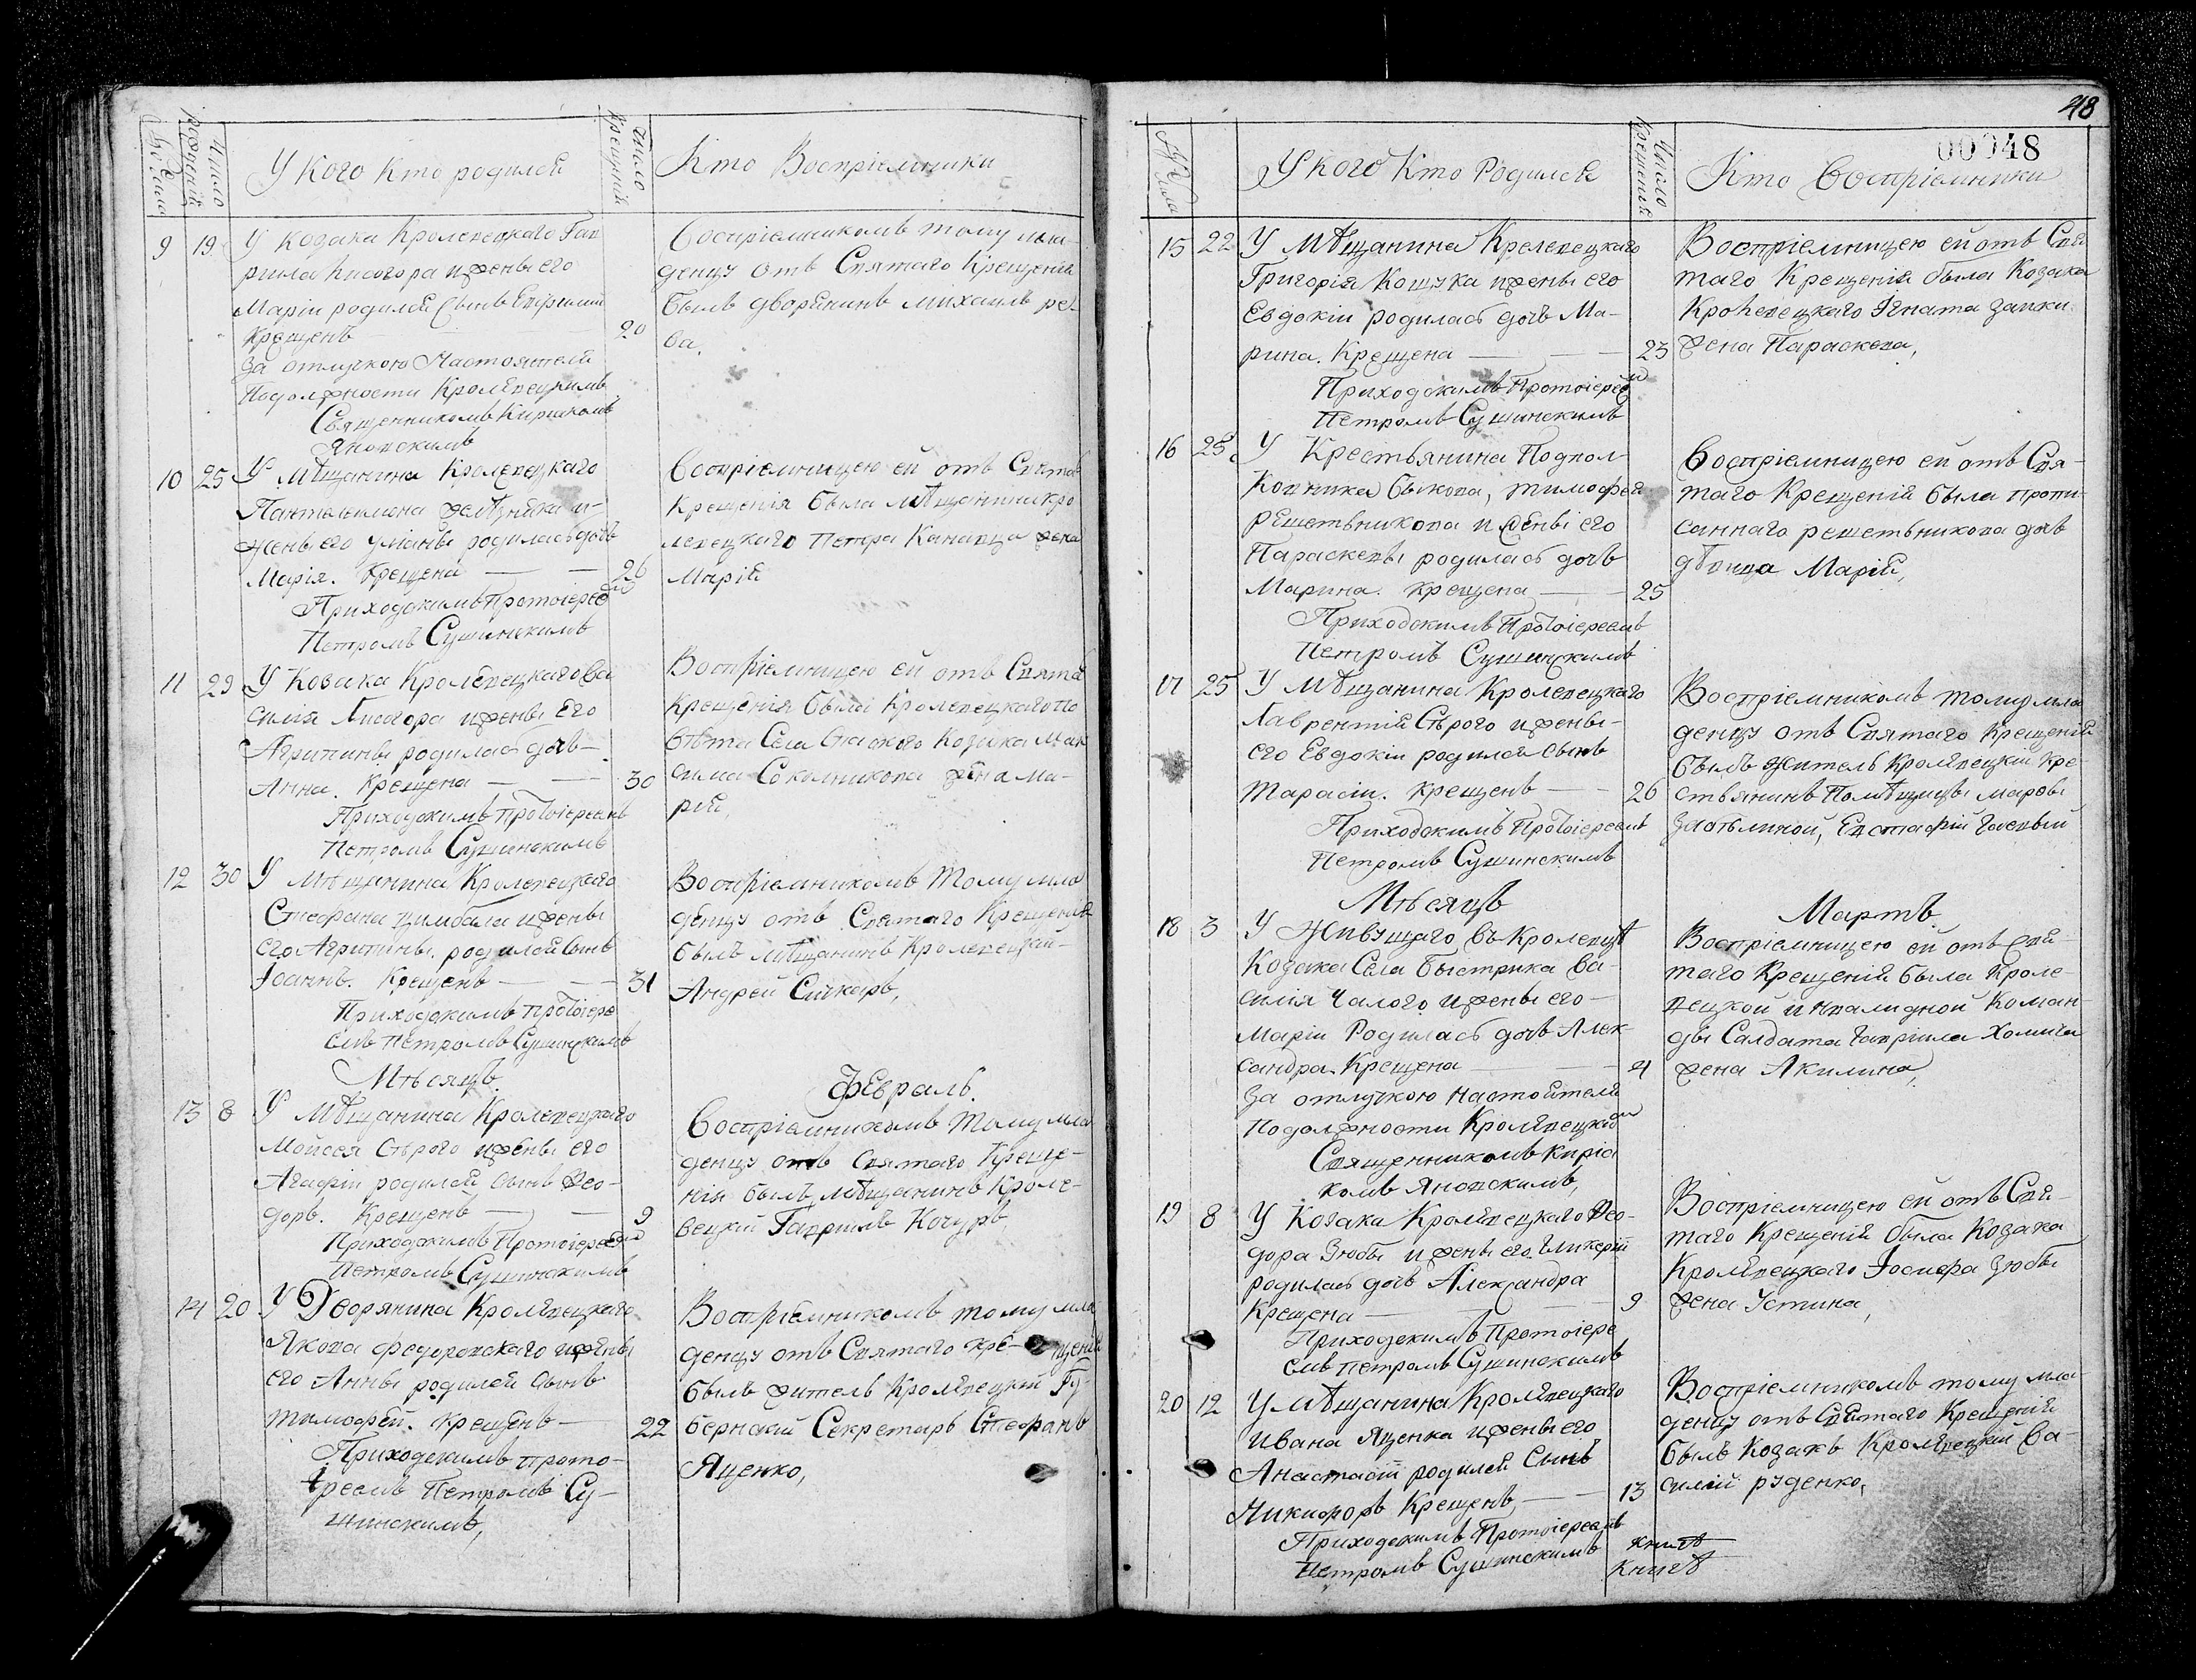 Число рождений
У Кого Кто родился
Число Крещений
Кто Воспріемники
9 19 У Козака Кролевецкаго Гав
рила Лисогора и жены его
Маріи родился Сынъ Ефремъ
Крещенъ 20
За отлучкою Настоятеля
По должности Кролевецкимъ
Священникомъ Киріакомъ
Яновскимъ
Воспріемникомъ тому мла-
денцу отъ Святаго Крещенія
былъ дворянинъ Михаилъ ре-
ва.
10 25 У Мѣщанина Кролевецкаго
Пантелеимона и
жены его Уліаны родилась дочь
Марія. Крещена — — 26
Приходскимъ Протоіереемъ
Петромъ Сушинскимъ
Воспріемницею ей отъ Святаго
Крещенія была мѣщанина кро
левецкаго Петра Канавца жена
Марія
11 29 У Козака Кролевецкаго Ва
силія Лисогора и жены Его
Агрипины родилась дочь —
Анна. Крещена — — 30
Приходскимъ Протоіереемъ
Петромъ Сушинскимъ
Воспріемницею ей отъ Святаго
Крещенія была Кролевецкаго По
вѣта Села Спаского Козака Мак
сима Соколникова жена Ма-
рія,
12 30 У Мѣщанина Кролевецкаго
Стефана Цимбала и жены
его Агрипины, родился Сынъ
Іоаннъ. Крещенъ — — 31
Приходскимъ Протоіере
емъ Петромъ Сушинскимъ
Воспріемникомъ Тому мла
денцу отъ Святаго Крещенія
былъ мѣщанинъ Кролевецкій —
Андрей Сичкарь,
Мѣсяцъ Февраль.
13 8 У Мѣщанина Кролевецкаго
Мойсея Сѣрого и жены его
Агафіи родился Сынъ Фео-
доръ. Крещенъ — — 9
Приходскимъ Протоіереемъ
Петромъ Сушинскимъ
Воспріемникомъ Тому мла
денцу отъ Святаго Креще-
нія былъ мѣщанинъ Кроле-
вецкій Гавріилъ Кочуръ,
14 20 У Дворянина Кролевецкаго
Якова Федоровскаго и жены
его Анны родился Сынъ
Тимофей. Крещенъ — 22
Приходскимъ прото-
іреемъ Петромъ Су-
шинскимъ,
Воспріемникомъ тому мла
денцу отъ Святаго Кре- щенія
былъ житель Кролевецкій Гу-
бернскій Секретарь Стефанъ
Яценко,
48
00048
№ Числа
У кого Кто Родился
Число Крещенія
Кто Воспріемники
15 22 У Мѣщанина Кролевецкаго
Григорія Кошука и жены его
Евдокіи родилась дочь Ма-
рина. Крещена — — 23
Приходскимъ Протоіереемъ
Петромъ Сушинскимъ
Воспріемницею ей отъ Свя
таго Крещенія была Козака
Кролевецкаго Игната Запки
жена Параскева,
16 25 У Крестьянина Подпол-
ковника Быкова, Тимофея
Решетьникова и жены его
Параскевы родилась дочь
Марина. Крещена — 25
Приходскимъ Протоіереемъ
Петромъ Сушинскимъ
Воспріемницею ей отъ Свя-
таго Крещенія была пропи-
саннаго решетьникова дочь
дѣвица Марія,
17 25 У Мѣщанина Кролевецкаго
Лаврентія Сѣрого и жены —
его Евдокіи родился Сынъ
Тарасій. Крещенъ — — 26
Приходскимъ Протоіереемъ
Петромъ Сушинскимъ
Воспріемникомъ тому мла
денцу отъ Святаго Крещенія
былъ житель Кролевецкій Кре-
стьянинъ Помѣщицы
Евстафій
Мѣсяцъ Мартъ
18 3 У Живущаго въ Кролевцѣ
Козака Села Быстрика Ва-
силія Чалого и жены его —
Маріи Родилась дочь Алек
сандра. Крещена — 4
За отлучкою Настоятеля
По должности Кролевецкимъ
Священникомъ Киріа
комъ Яновскимъ,
Воспріемницею ей отъ Свя-
таго Крещенія была Кроле
вецкой инвалидной Коман-
ды Салдата Гаврила Хомича
жена Акилина,
19 8 У Козака Кролевецкаго Фео-
дора Зюбы и жены его Гликеріи
родилась дочь Александра
Крещена — — 9
Приходскимъ Протоіере
емъ Петромъ Сушинскимъ
Воспріемницею ей отъ Свя-
таго Крещенія была Козака
Кролевецкаго Іосифа Зюбы
жена Устина,
20 12 У Мѣщанина Кролевецкаго
Ивана Яценка и жены его
Анастасіи родился Сынъ
Никифоръ Крещенъ, — — 13
Приходскимъ Протоіереемъ
Петромъ Сушинскимъ
Воспріемникомъ тому мла-
денцу отъ Святаго Крещенія
былъ Козакъ Кролевецкій Ва-
силій Руденко,